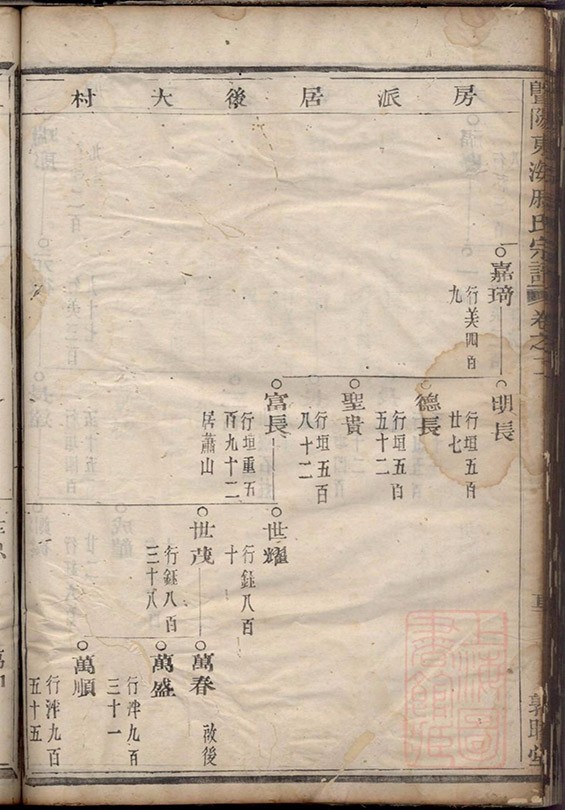 房派居後大村
嘉琦
行美四百
九
明長
行垣五百
廿七
德長
行垣五百
五十二
聖貴
行垣五百
八十二
富長
行垣重五
百九十二
居蕭山
世耀
行鈺八百
十
世茂
行鈺八百
三十八
萬春
萬盛
行泮九百
三十一
萬順
行泮九百
五十五